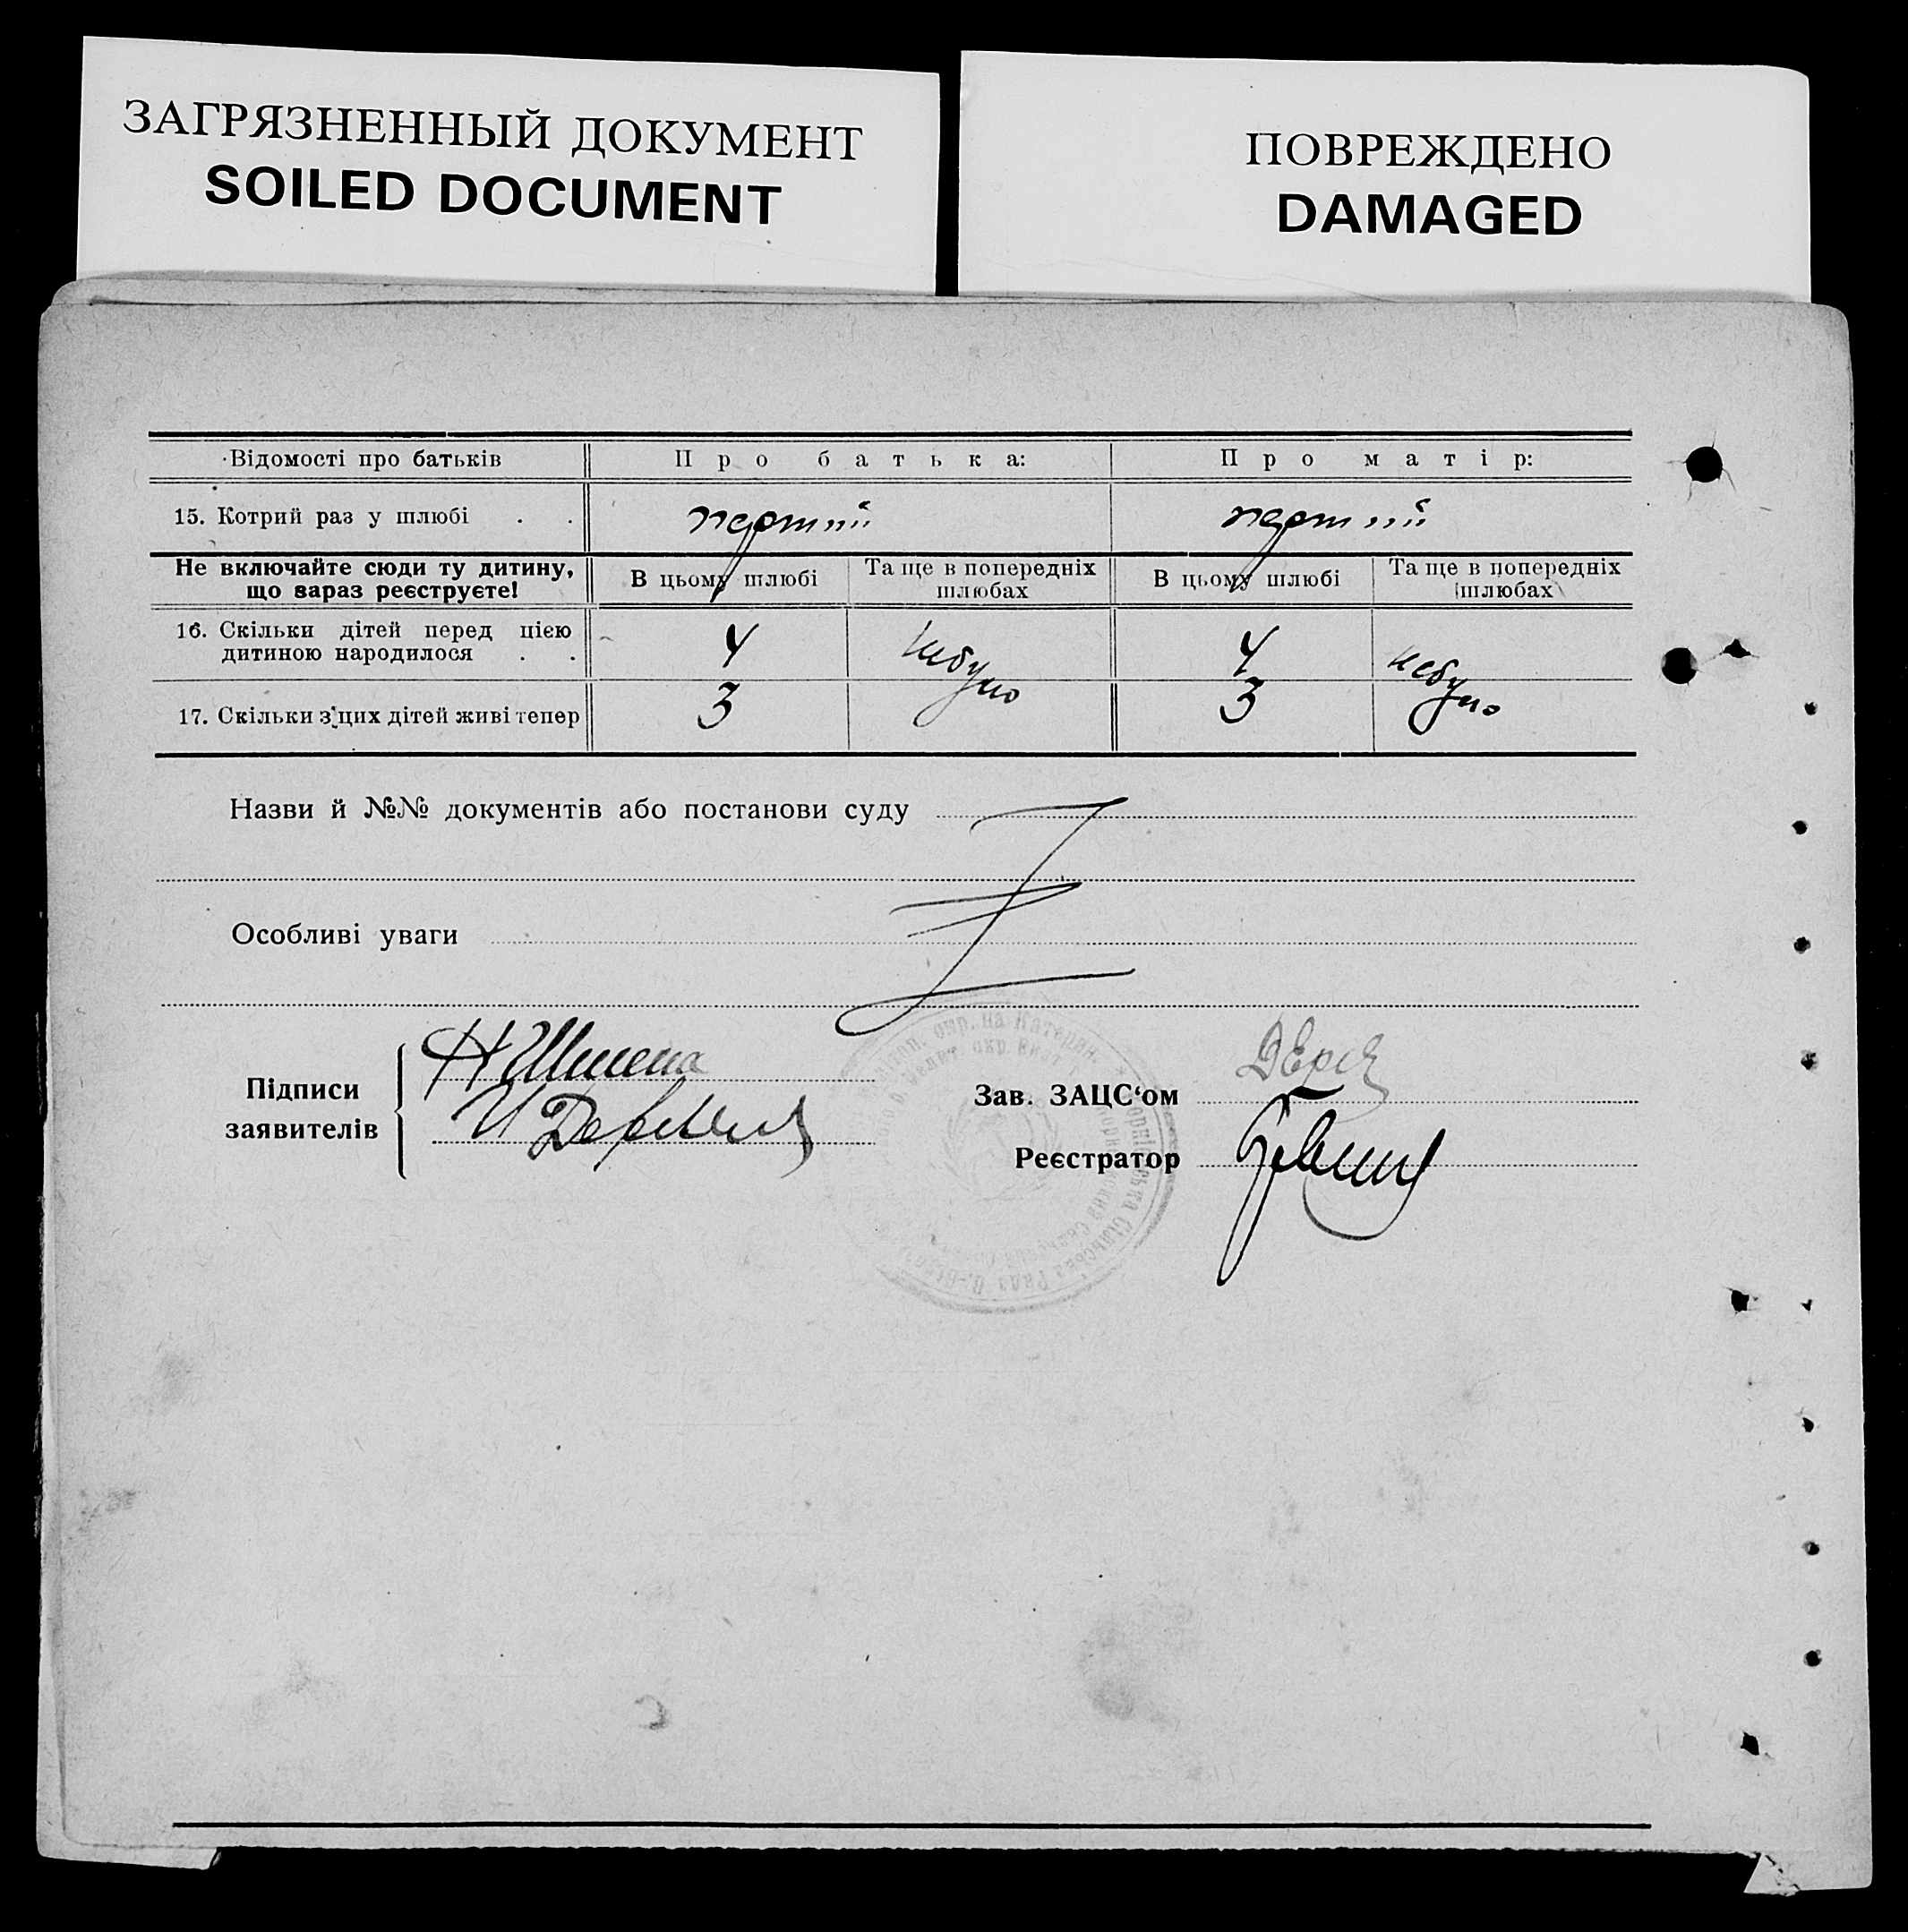 ЗАГРЯЗНЕННЫЙ ДОКУМЕНТ
SOILED DOCUMENT
ПОВРЕЖДЕНО
DAMAGED
Відомості про батьків Про батька: Про матір:
15. Котрий раз у шлюбі . . перший перший
Не включайте сюди ту дитину, що вараз реєструєте!
В цьому шлюбі Та ще в попередніх шлюбах В цьому шлюбі Та ще в попередніх шлюбах
16. Скільки дітей перед цією
дитиною народилося . . 4 небуло 4 небуло
17. Скільки з'цих дітей живі тепер 3 3
Назви й №№ документів або постанови суду
Особливі уваги
Підписи
заявителів
Зав. ЗАЦС‘ом
Реєстратор